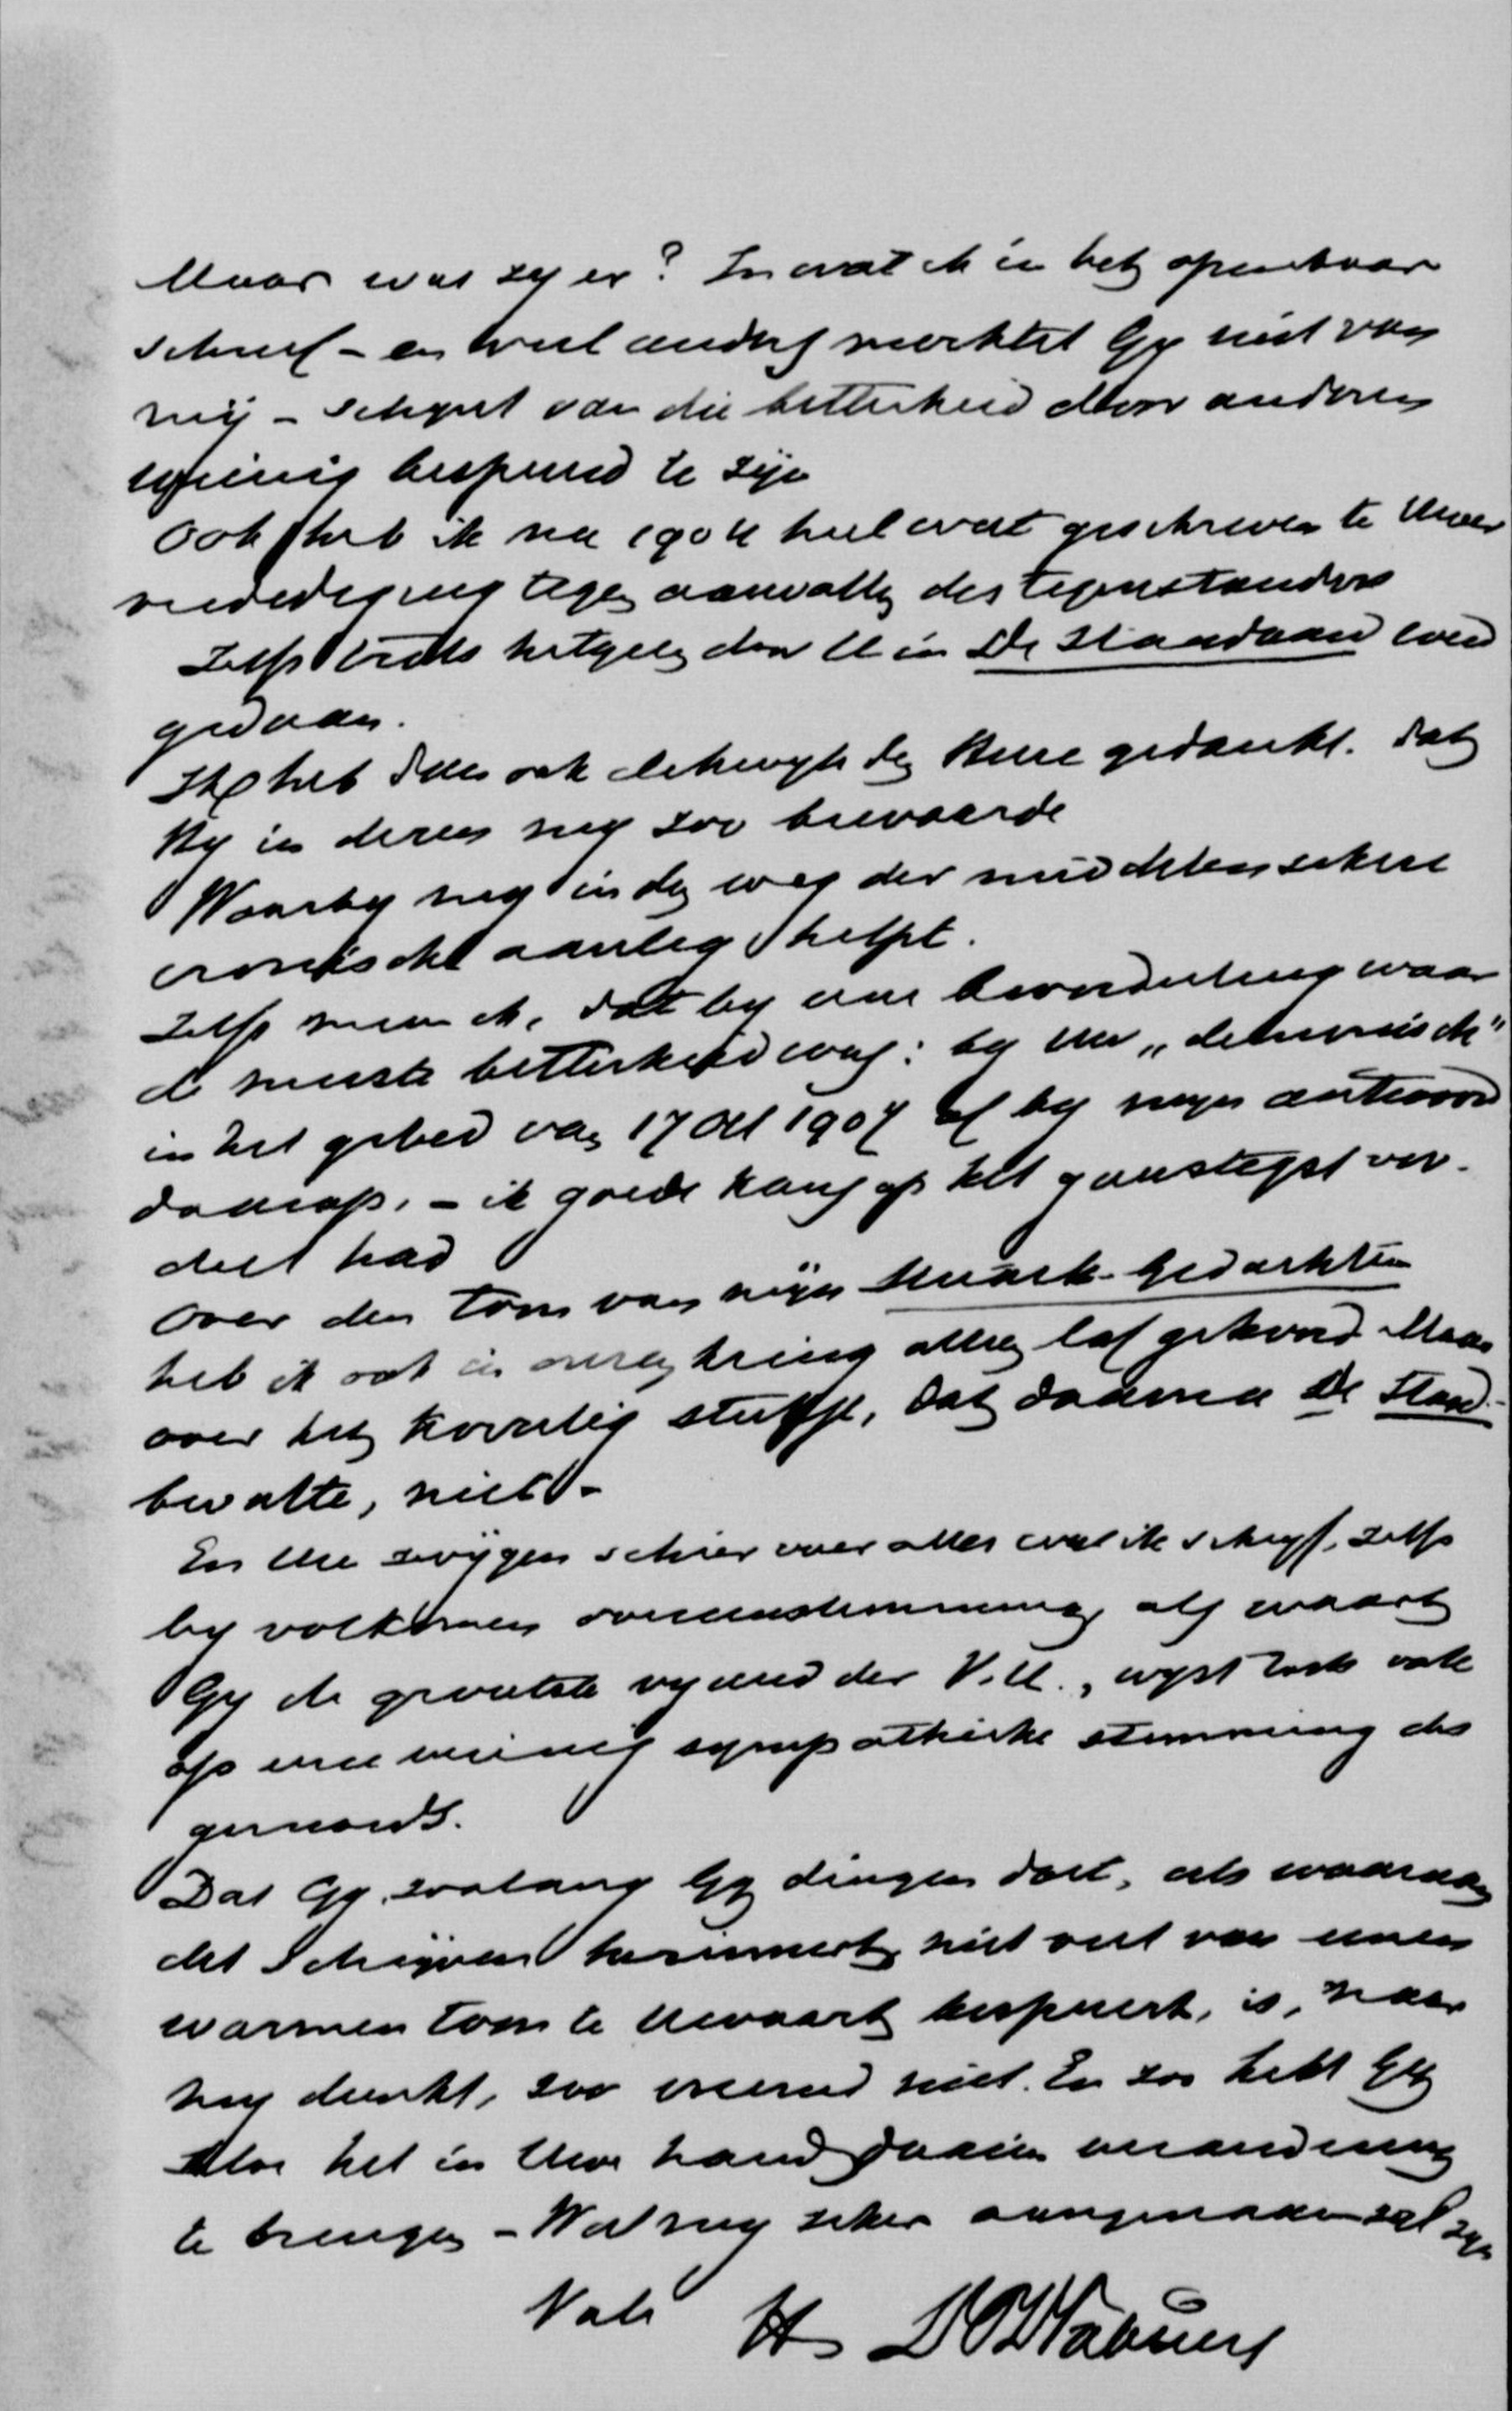 Maar was zij er? In wat ik in het openbaar
schreef – en veel anders merktet Gij niet van
mij – schijnt van die bitterheid door anderen
weinig bespeurd te zijn
Ook heb ik na 1904 heel wat geschreven te Uwer
verdediging tegen aanvallen des tegenstanders
Zelfs trots hetgeen door U in De Standaard werd
gedaan.
Ik heb dan ook den Heere gedankt. dat
Hij in deren mij zoo bewaarde
Waarbij mij in den weg der middelen zekere
ironische aanleg helpt.
Zelfs meen ik, dat bij eene beoordeeling waar
de meeste bitterheid was: bij Uw „
in het gebed van 17 Oct 1907 of bij mijn antwoord
daarop. – ik goede kans op het gunstigst oor-
deel had
Over den toon van mijn Gedachten
heb ik ook in onzen kring allen lof gehoord Maar
over het stukje, dat daarna De Stand.
bevatte, niet. –
En Uw zwijgen schier over alles wat ik schrijf, zelfs
bij volkomen overeenstemming, als waart
Gij de grootste vijand der V.U., wijst toch ook
op eene weinig sympathieke stemming des
gemoeds.
Dat Gij, zoolang Gij dingen doet, als waaraan
dit schrijven herinnert, niet veel van eenen
warmen toon te Uwaart bespeurt, is, naar
mij dunkt, zoo vreemd niet. En zoo hebt Gij
Zelve het in Uwe hand daarin verandering
te brengen – Wat mij zeker aangenaam zal zijn
Vale H